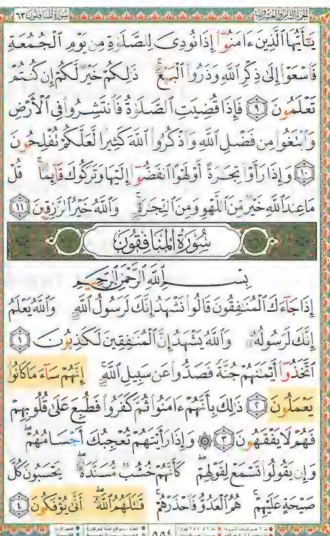 يَٰٓأَيُّهَا ٱلَّذِينَ ءَامَنُوٓا۟ إِذَا نُودِىَ لِلصَّلَوٰةِ مِن يَوْمِ ٱلْجُمُعَةِ
فَٱسْعَوْا۟ إِلَىٰ ذِكْرِ ٱللَّهِ وَذَرُوا۟ ٱلْبَيْعَ ۚ ذَٰلِكُمْ خَيْرٌ لَّكُمْ إِن كُنتُمْ
تَعْلَمُونَ ٩ فَإِذَا قُضِيَتِ ٱلصَّلَوٰةُ فَٱنتَشِرُوا۟ فِى ٱلْأَرْضِ
وَٱبْتَغُوا۟ مِن فَضْلِ ٱللَّهِ وَٱذْكُرُوا۟ ٱللَّهَ كَثِيرًا لَّعَلَّكُمْ تُفْلِحُونَ
١٠ وَإِذَا رَأَوْا۟ تِجَٰرَةً أَوْ لَهْوًا ٱنفَضُّوٓا۟ إِلَيْهَا وَتَرَكُوكَ قَآئِمًا ۚ قُلْ
مَا عِندَ ٱللَّهِ خَيْرٌ مِّنَ ٱللَّهْوِ وَمِنَ ٱلتِّجَٰرَةِ ۚ وَٱللَّهُ خَيْرُ ٱلرَّٰزِقِينَ ١١
سُورَةُ المُنَافِقُونَ
بِسْمِ ٱللَّهِ ٱلرَّحْمَٰنِ ٱلرَّحِيمِ
إِذَا جَآءَكَ ٱلْمُنَٰفِقُونَ قَالُوا۟ نَشْهَدُ إِنَّكَ لَرَسُولُ ٱللَّهِ ۗ وَٱللَّهُ يَعْلَمُ
إِنَّكَ لَرَسُولُهُۥ وَٱللَّهُ يَشْهَدُ إِنَّ ٱلْمُنَٰفِقِينَ لَكَٰذِبُونَ ١
ٱتَّخَذُوٓا۟ أَيْمَٰنَهُمْ جُنَّةً فَصَدُّوا۟ عَن سَبِيلِ ٱللَّهِ ۚ إِنَّهُمْ سَآءَ مَا كَانُوا۟
يَعْمَلُونَ ٢ ذَٰلِكَ بِأَنَّهُمْ ءَامَنُوا۟ ثُمَّ كَفَرُوا۟ فَطُبِعَ عَلَىٰ قُلُوبِهِمْ
فَهُمْ لَا يَفْقَهُونَ ٣ ۞ وَإِذَا رَأَيْتَهُمْ تُعْجِبُكَ أَجْسَامُهُمْ ۖ
وَإِن يَقُولُوا۟ تَسْمَعْ لِقَوْلِهِمْ ۖ كَأَنَّهُمْ خُشُبٌ مُّسَنَّدَةٌ ۖ يَحْسَبُونَ كُلَّ
صَيْحَةٍ عَلَيْهِمْ ۚ هُمُ ٱلْعَدُوُّ فَٱحْذَرْهُمْ ۚ قَٰتَلَهُمُ ٱللَّهُ ۖ أَنَّىٰ يُؤْفَكُونَ ٤
٥٥٤